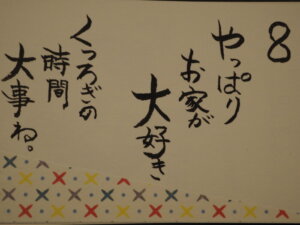 8
やっぱり
お家が
大好き
くつろぎの
時間
大事ね。